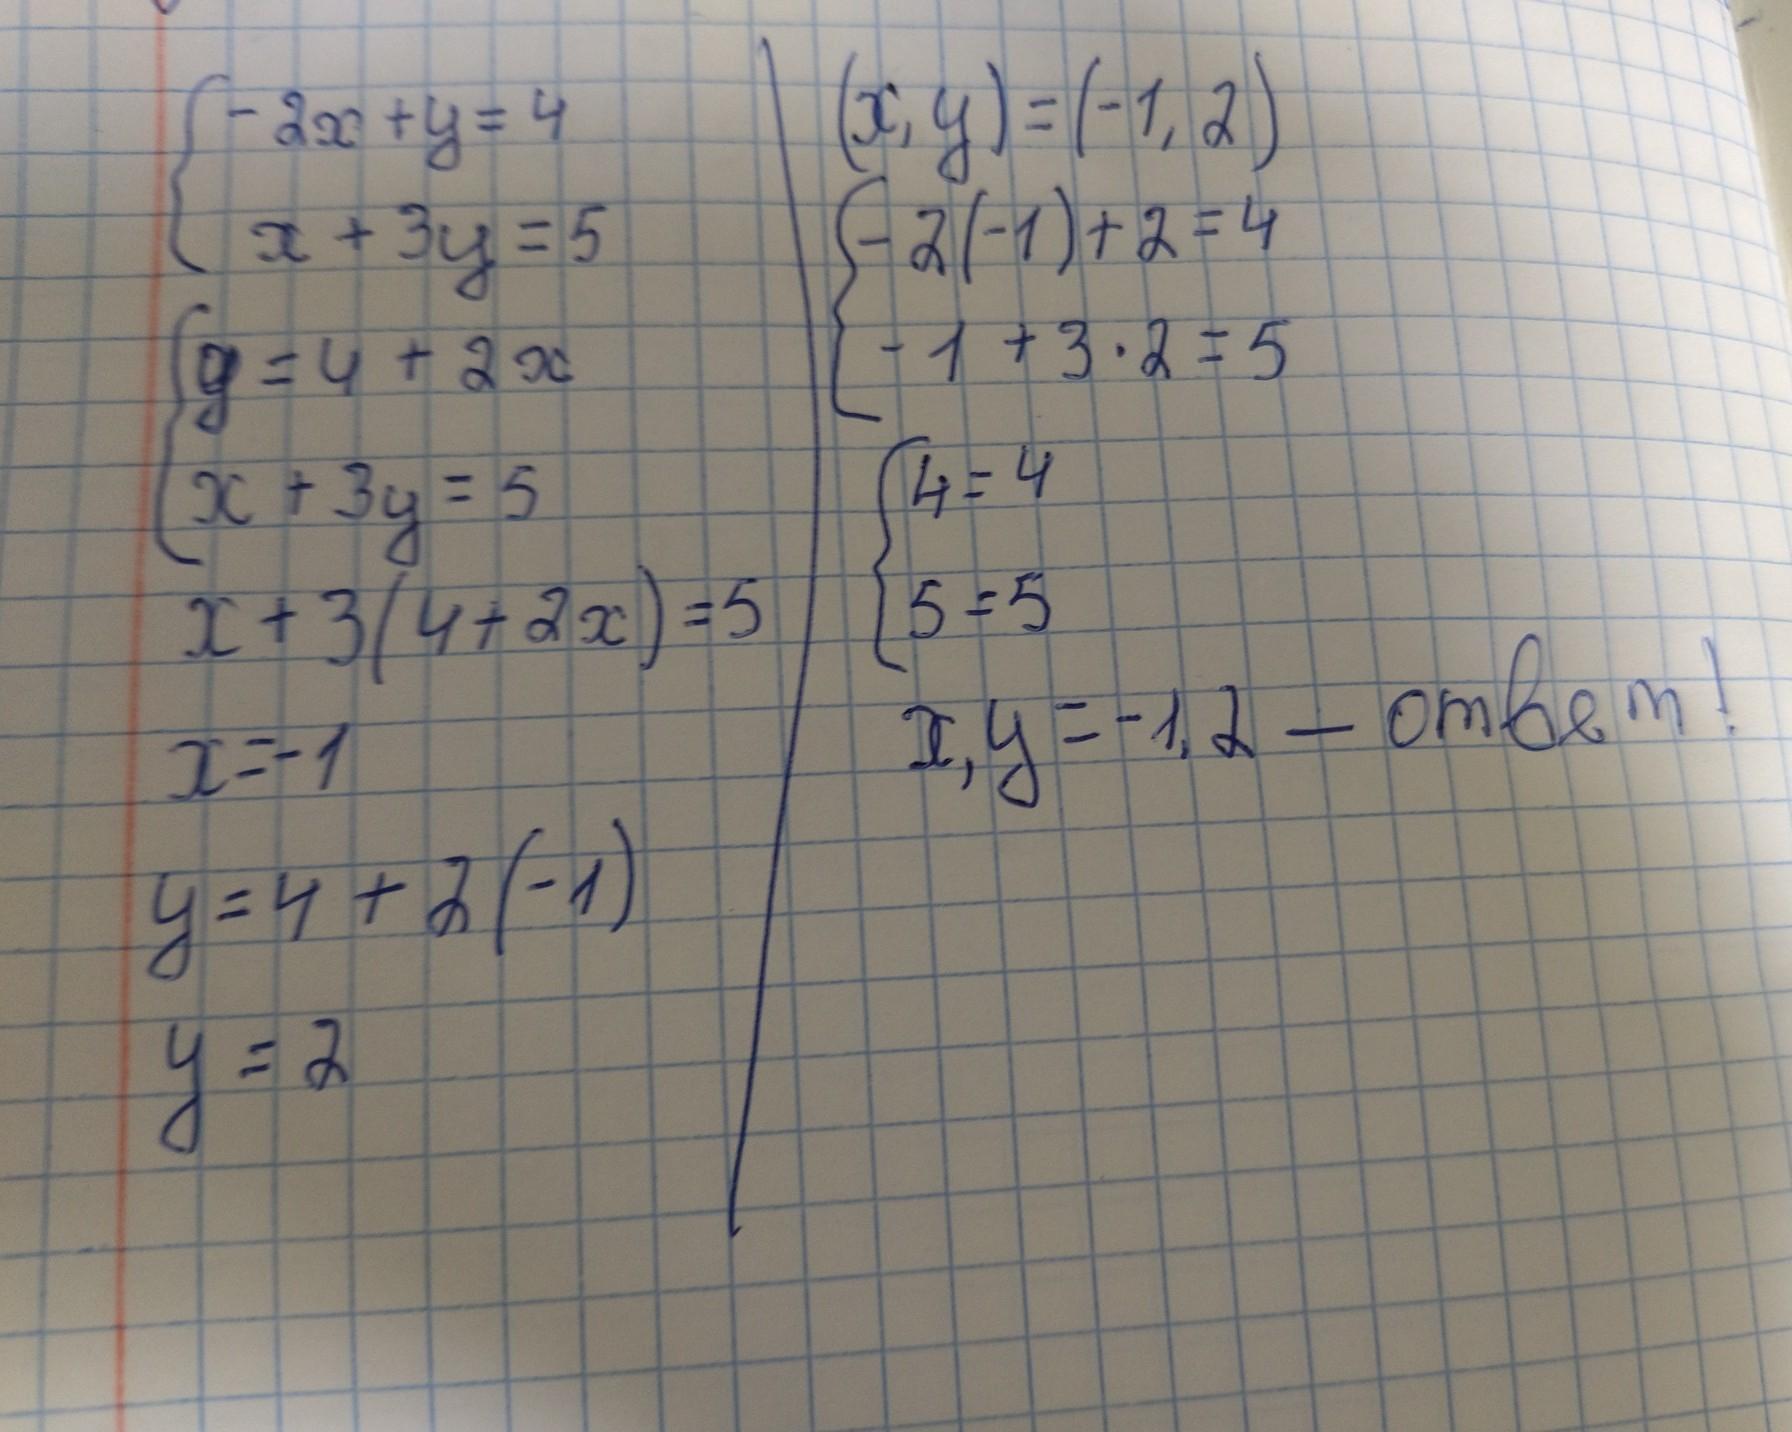 -2x+y=4
x+3y=5
y=4+2x
x+3y=5
x+3(4+2x)=5
x=-1
y=4+2(-1)
y=2
(x,y)=(-1,2)
-2(-1)+2=4
-1+3·2=5
4=4
5=5
x,y=-1,2 — ответ!